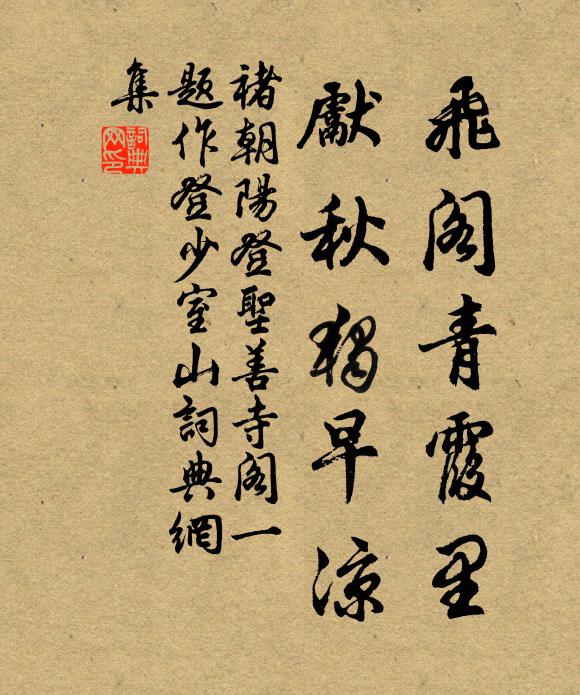 飛閣青霞里
獻秋獨早涼
褚朝陽登聖善寺閣一
題作登少室山詞典網
集
詞典网印